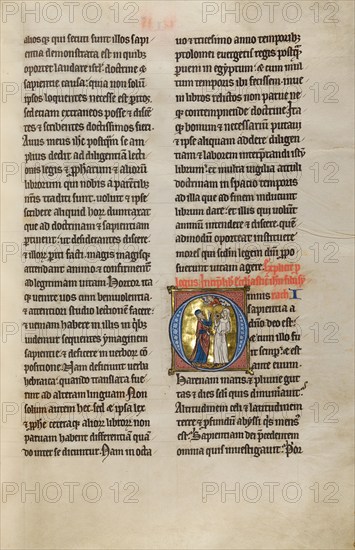 alios qui secuti sunt illos sapi
entia demonstrata est in quibus
oportet laudare isrl. doctrine &
sapientie causa: quia non solum
ipsos loquentes necesse est peritos,
sed etiam extraneos posse & dicen
tes & scribentes doctissimos fieri.
Auus meus ihc postquam se am
plius dedit ad diligentiam lecti
onis legis & prophetarum & aliorum
librorum qui nobis a parentibus
nostris traditi sunt. uoluit & ipse
scribere aliquid horum
ad doctrinam & sapientiam
pertinent. ut desiderantes discere
& illorum periti facti. magis magisque
attendant animo & confirmentur
ad legittimam uitam. Hortor ita
que uenire uos cum beniuolentia
& attentiori studio lectionem facere
& ueniam habere in illis in quibus
uidemur sequentes ymaginem
sapientie & deficere in uerborum co
positione. Nam deficiunt uerba
hebraica: quando translata fue
rint ad alteram linguam. Non
solum autem hec. sed & ipsa lex
& prophete ceteraque aliorum librorum non
paruam habent differentiam. quando
inter se dicuntur. Nam in octa
uo & tricesimo anno temporibus
ptolomei euergetis regis postquam
perueni in egyptum: & cum mul
tum temporis ibi fecissem. inue
ni libros relictos non parue ne
que contempnende doctrine. Ita
que bonum & necessarium putaui
& ipse aliquam addere diligen
tiam & laborem interpretandi istum
librum. & multa uigilia attuli
doctrinam in spacio temporis
ad illa que ad finem inducunt
librum dare. & illis qui uolunt
animum intendere & discere. que
admodum oporteat instituere
mores. qui secundum legem domini propo
suerint uitam agere. Explicit
logus. Incipit liber ecclesiasticus
Omnis
sapientia a
domino deo est:
& cum illo fu
it semper. & est
ante euum.
Harenam maris. & pluuie gut
tas & dies seculi quis dinumerauit.
Altitudinem celi & latitudinem
terre & profundum abyssi quis mens
est. Sapientiam dei precedentem
omnia quis inuestigauit.